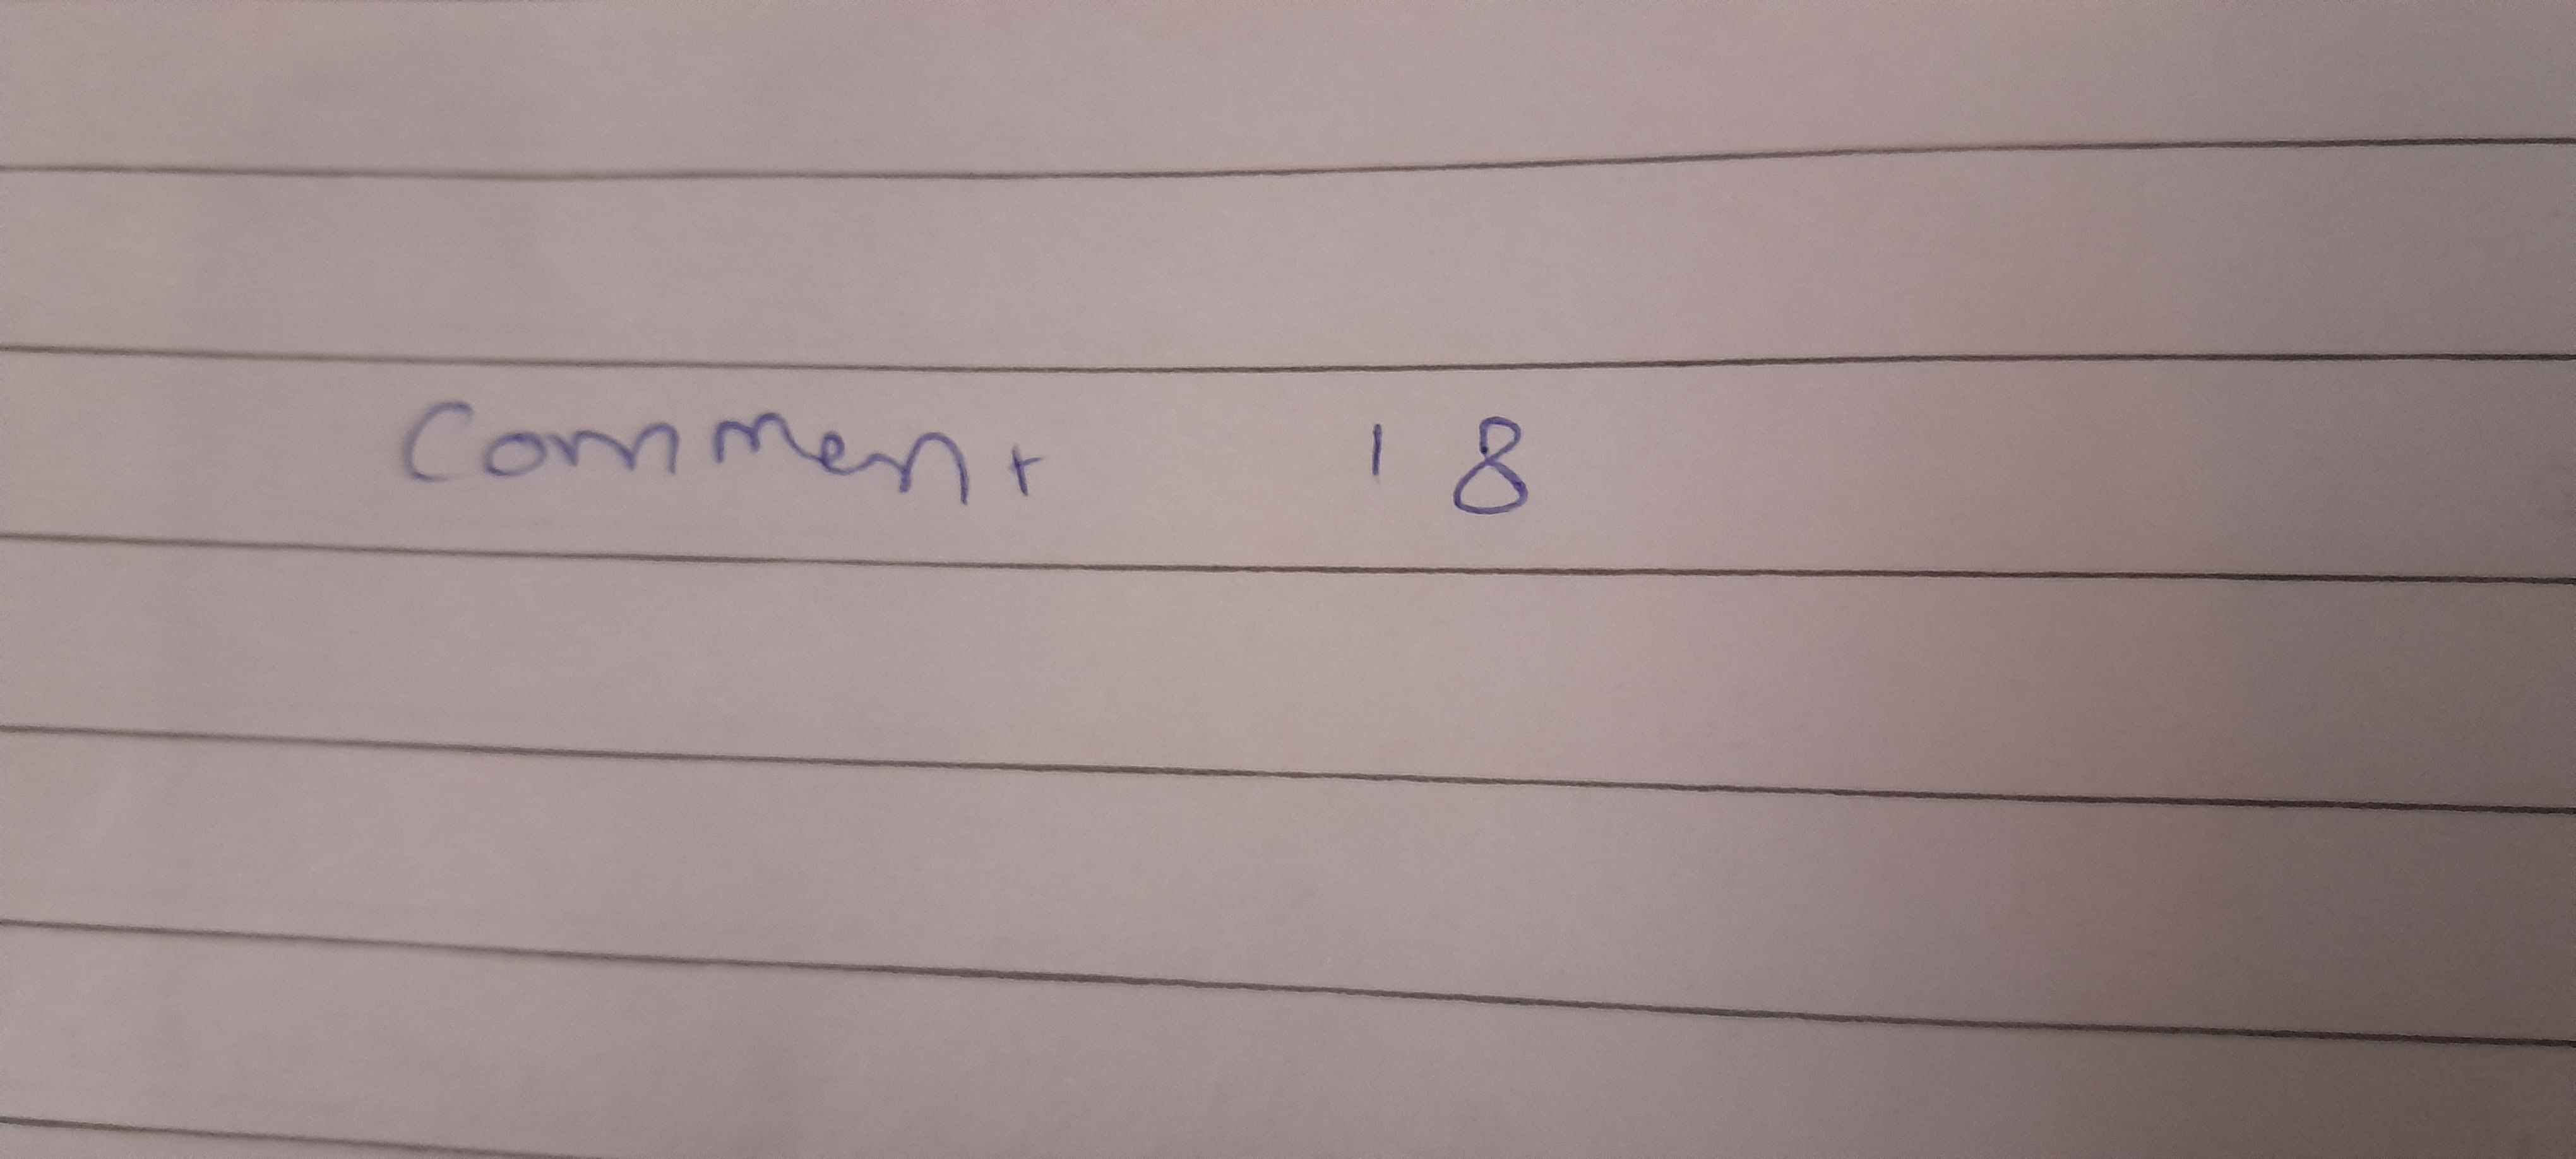 Comment 18